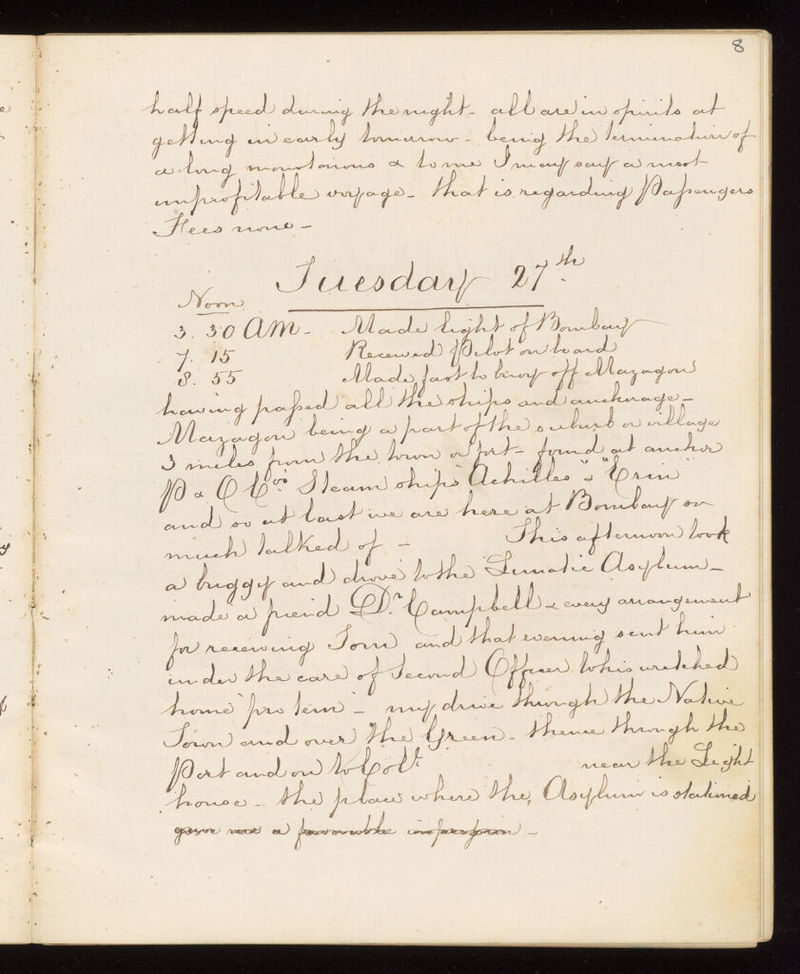 8
half speed during the night - all are in spirits at
getting in early tomorrow - being the termination of
a long monotonous & to me I may say a most
unprofitable voyage - that is regarding Passengers
Fees none -
Tuesday 27th
Noon
3. 30 AM - Made light of Bombay
7. 15 Received Pilot on board
8. 55 Made fast to buoy off Mazagon
having passed all the ships and anchorage -
Mazagon being a part of the suburb or village
3 miles from the town or fort - found at anchor
P & O Cos Steam ships "Achilles" & "Erin"
and so at last we are here at Bombay so
much talked of - This afternoon took
a buggy and drove to the Lunatic Asylum -
made a friend Dr. Campbell & every arrangement
for receiving Tom and that evening sent him
under the care of Second Officer to his wretched
home pro tem - my drive through the Native
Town and over the Green - thence through the
Fort and on to near the Light
house - the place where the Asylum is stationed
gave me a favourable impression -